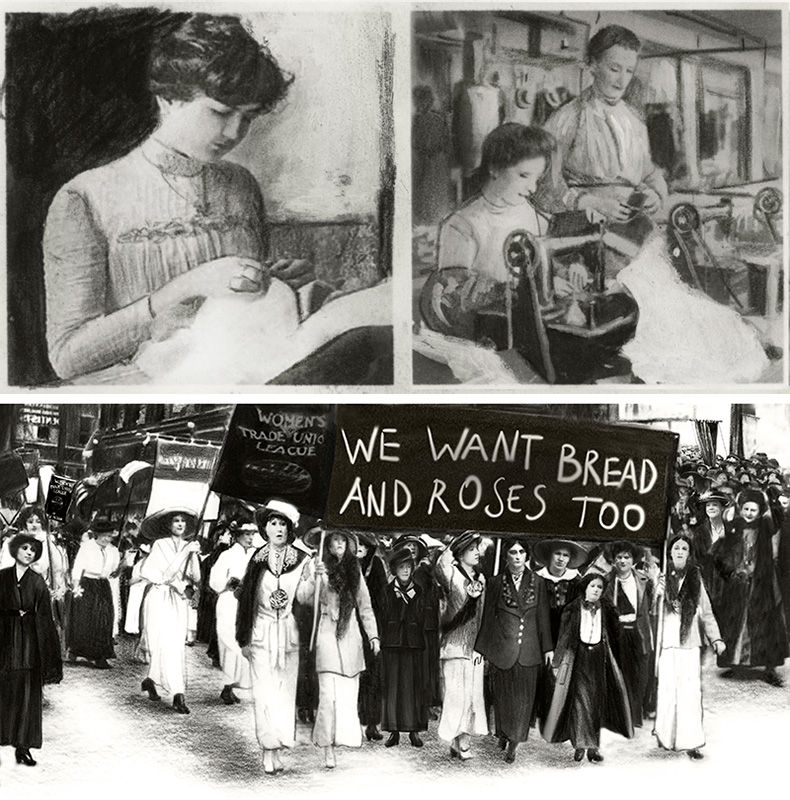 WOMEN'S
TRADE UNIO
LEAGUE
WE WANT BREAD
AND ROSES TOO